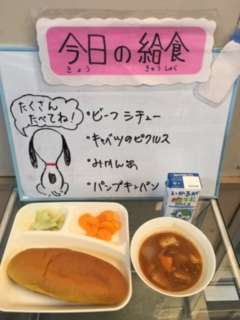 今日の給食
きょう きゅうしょく
たくさん
たべてね!
・ビーフシチュー
・キャベツのピクルス
・みかんあ
・パンプキンパン